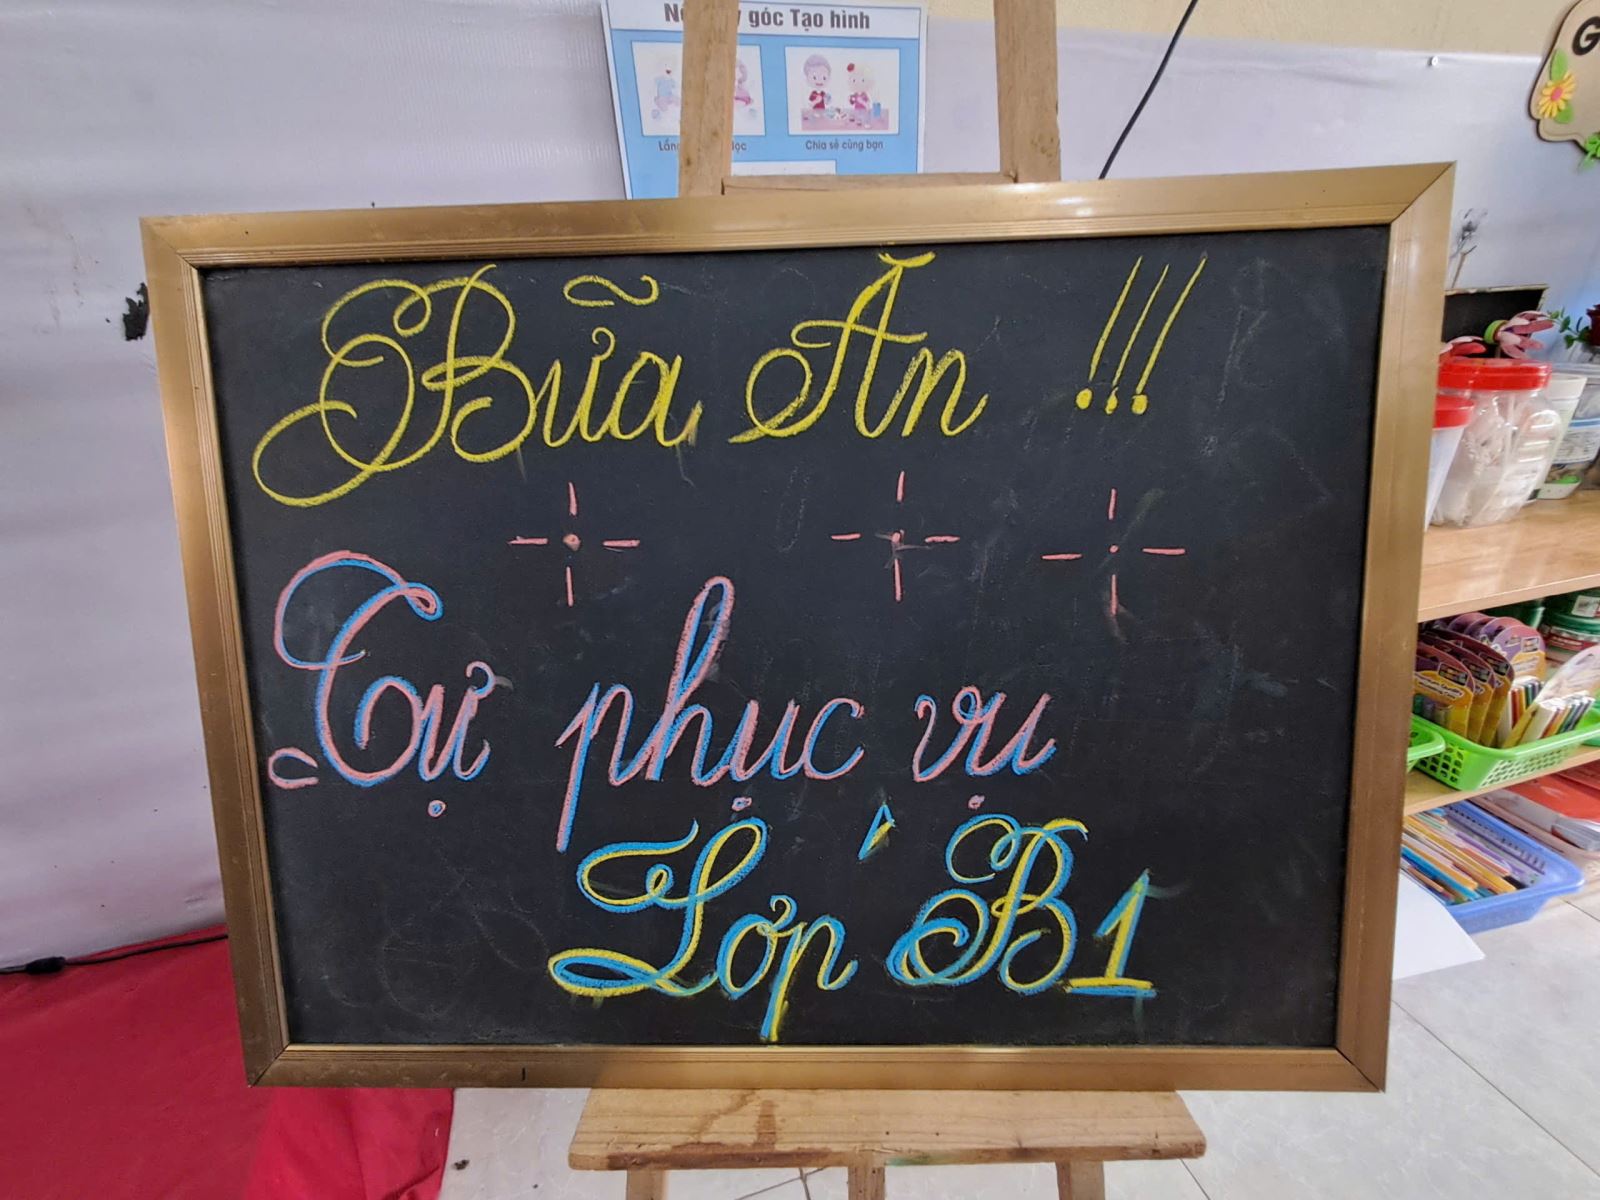 góc Tạo hình
Chia sẻ cùng bạn
Bữa Ăn !!!
Tự phục vụ
Lớp B1
G